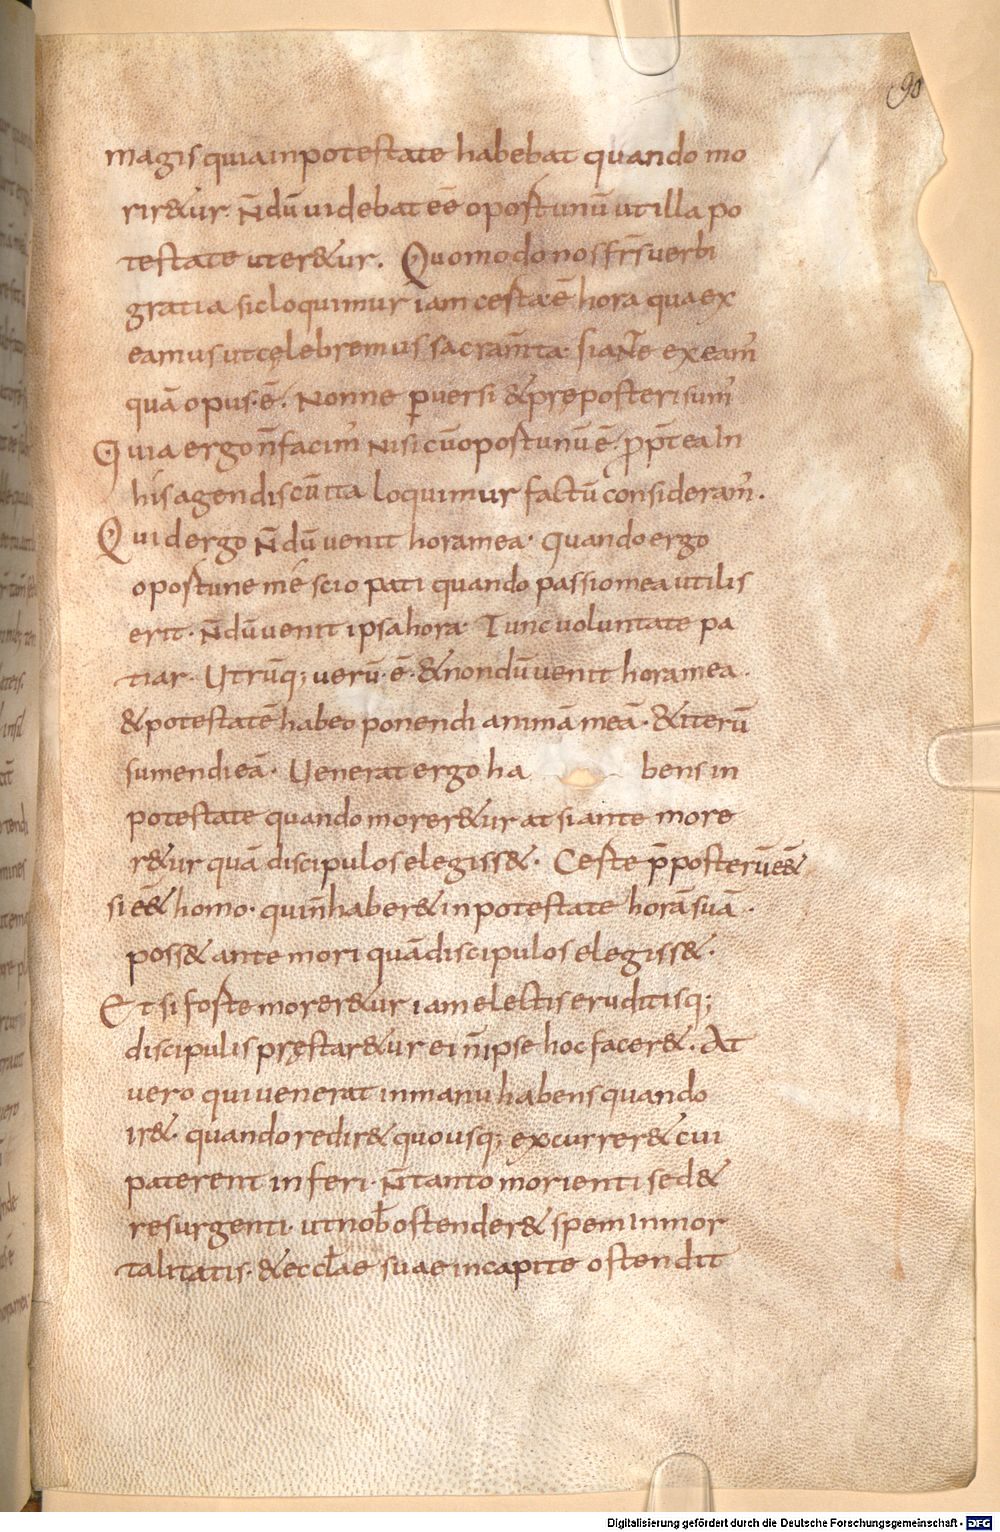 90
magis quia in potestate habebat quando mo
rir&ur. N̄dū videbat eē oportunū ut illa po
testate uter&ur. Quomodo nos fr̄s verbi
gratia sic loquimur iam certa ē hora qua ex
eamus ut cęlebremus sacram̄ta. si an̄te exeam'
quā opus·ē. Nonne ꝑversi & pręposteri sum'
Quia ergo n̄ facim' nisi cū oportunū ē. ꝓpt̄ea In
his agendis cū ita loquimur factū consideram'.
Quid ergo N̄dū venit hora mea. quando ergo
oportune mé scio pati quando passio mea utilis
erit. N̄dū venit ipsa hora. Tunc voluntate pa
tiar. Utrūq; verū·ē·& nondū venit hora mea.
& potestatē habeo ponendi animā meā. & iterū
sumendi eā. Venerat ergo ha bens in
potestate quando morer&ur at si ante more
r&ur quā discipulos elegiss&. Certe p̄posterū eē&
si eē& homo. qui n̄ haber& in potestate horā suā.
poss& ante mori quā discipulos elegiss&.
Et si forte morer&ur iam electis eruditisq;
discipulis pręstar&ur ei n̄ ipse hoc facer&. At
vero qui venerat in manu habens quando
ir&. quando redir& quousq; excurrer& cui
paterent inferi. N̄ tanto morienti sed &
resurgenti. ut nob̄ ostender& spem inmor
talitatis. & eccłae suae in capite ostendit
Digitalisierung gefördert durch die Deutsche Forschungsgemeinschaft - DFG